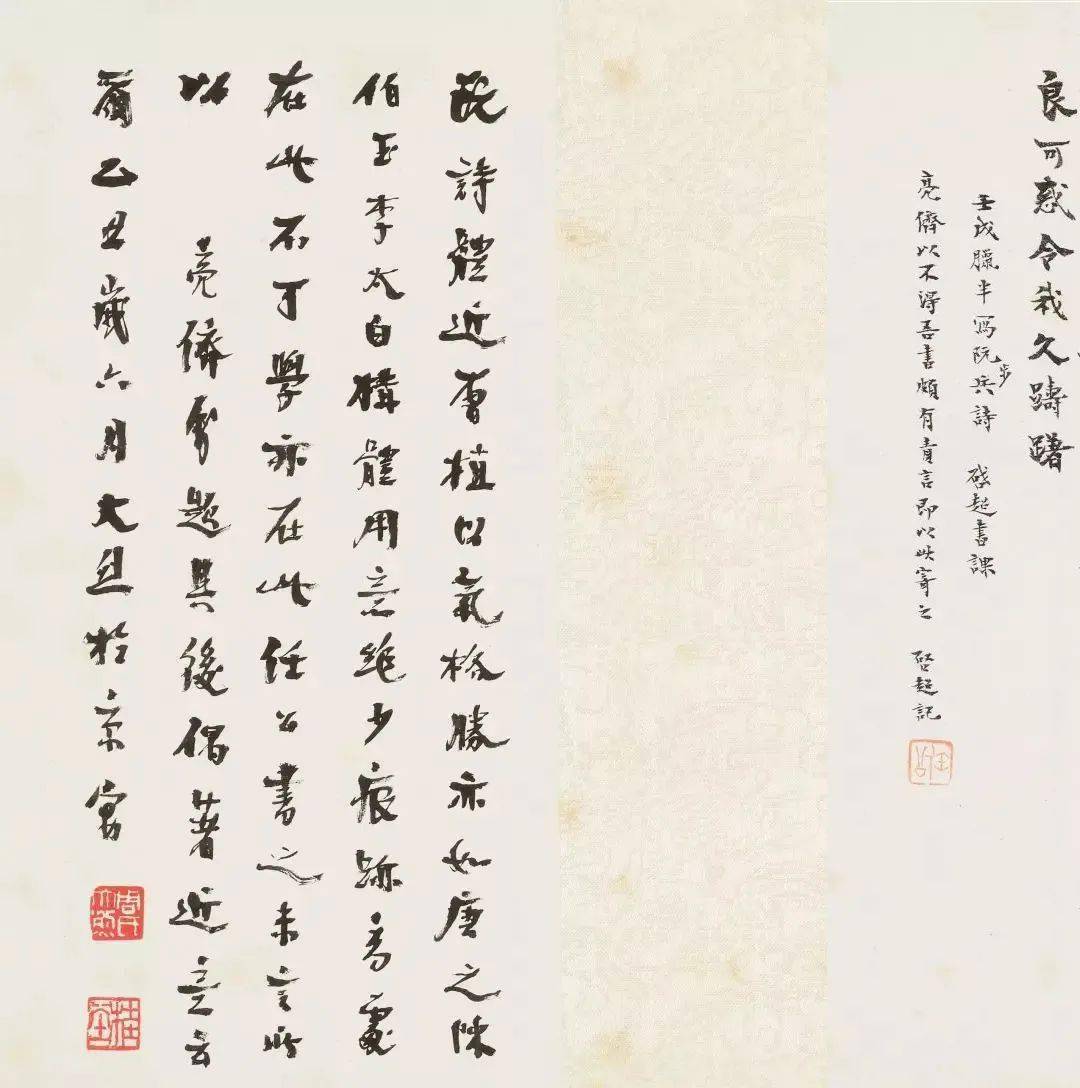 良可惑令我久躊躇
壬戌臘半寫阮步兵詩 啟超書課
亮儕以不得吾書頗有責言即以此寄之 啟超記
任公
阮詩體近曹植以氣格勝亦如唐之陳
伯玉李太白構體用意絕少痕跡高處
在此不可學亦在此任公書之未言所
以 亮儕屬題其後偶著近意云
爾乙丑歲六月大烈於京寓
周氏大烈